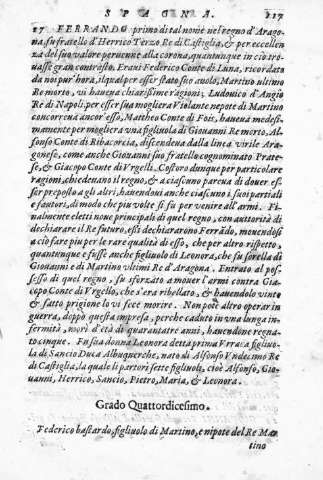 SPAGNA. 217
17 FERRANDO primo di tal nome nel regno d'Arago
na, su fratello d'Herrico Terzo Re di Castiglia, & per eccellen
za del suo valore peruenne alla corona, quantunque in ciò tro
uasse gran contrasto. Erani Federico Conte di Luna, ricordato
da noi pur' hora, il qual per esser stato suo auolo, Martino ultimo
Re morto, vi haueua chiarissime ragioni; Ludouico d'Angiò
Re di Napoli per esser sua mogliera Violante nepote di Martino
concorreua ancor' esso, Mattheo Conte di Fois, haueua medesi-
mamente per mogliera vna figliuola di Giouanni Re morto, Al-
fonso Conte di Ribacorcia, discendeua dalla linea virile Ara-
gonese, come anche Giouanni suo fratello cognominato Prate-
se, & Giacopo Conte di Vrgelli. Costoro dunque per particolare
ragioni, chiedeuano il regno, & a ciascuno parcua di douer es-
ser preposto a gli altri, hauendoui anche ciascuno i suoi partiali
e fautori, di modo che piu volte si fu per venire all' armi. Fi-
nalmente eletti noue principali di quel regno, con auttorità di
dechiarare il Re futuro, essi dechiararono Ferrādo, mouendosi
a ciò fare piu per le rare qualità di esso, che per altro rispetto,
quantunque e fusse anche figliuolo di Leonora, che fu sorella di
Giouanni e di Martino vltimi Re d'Aragona. Entrato al pos-
sesso di quel regno, fu sforzato a mouer l'armi contra Gia-
copo Conte di Vrgello, che s'era ribellato, & hauendolo vinto
& fatto prigione lo vi fece morire. Non potè altro operar in
guerra, doppo questa impresa, perche caduto in vna lunga in-
fermità, morì d'età di quarantatre anni, hauendone regna-
to cinque. Fu sua donna Leonora detta prima Vrraca figliuo-
la di Sancio Duca Albuquerche, nato di Alfonso Vndecimo Re
di Castiglia, la quale li partorì sette figliuoli, cioè Alfonso, Gio-
uanni, Herrico, Sancio, Pietro, Maria, & Leonora.
Grado Quattordicesimo.
Federico bastardo, figliuolo di Martino, e nipote del Re Mar
tino